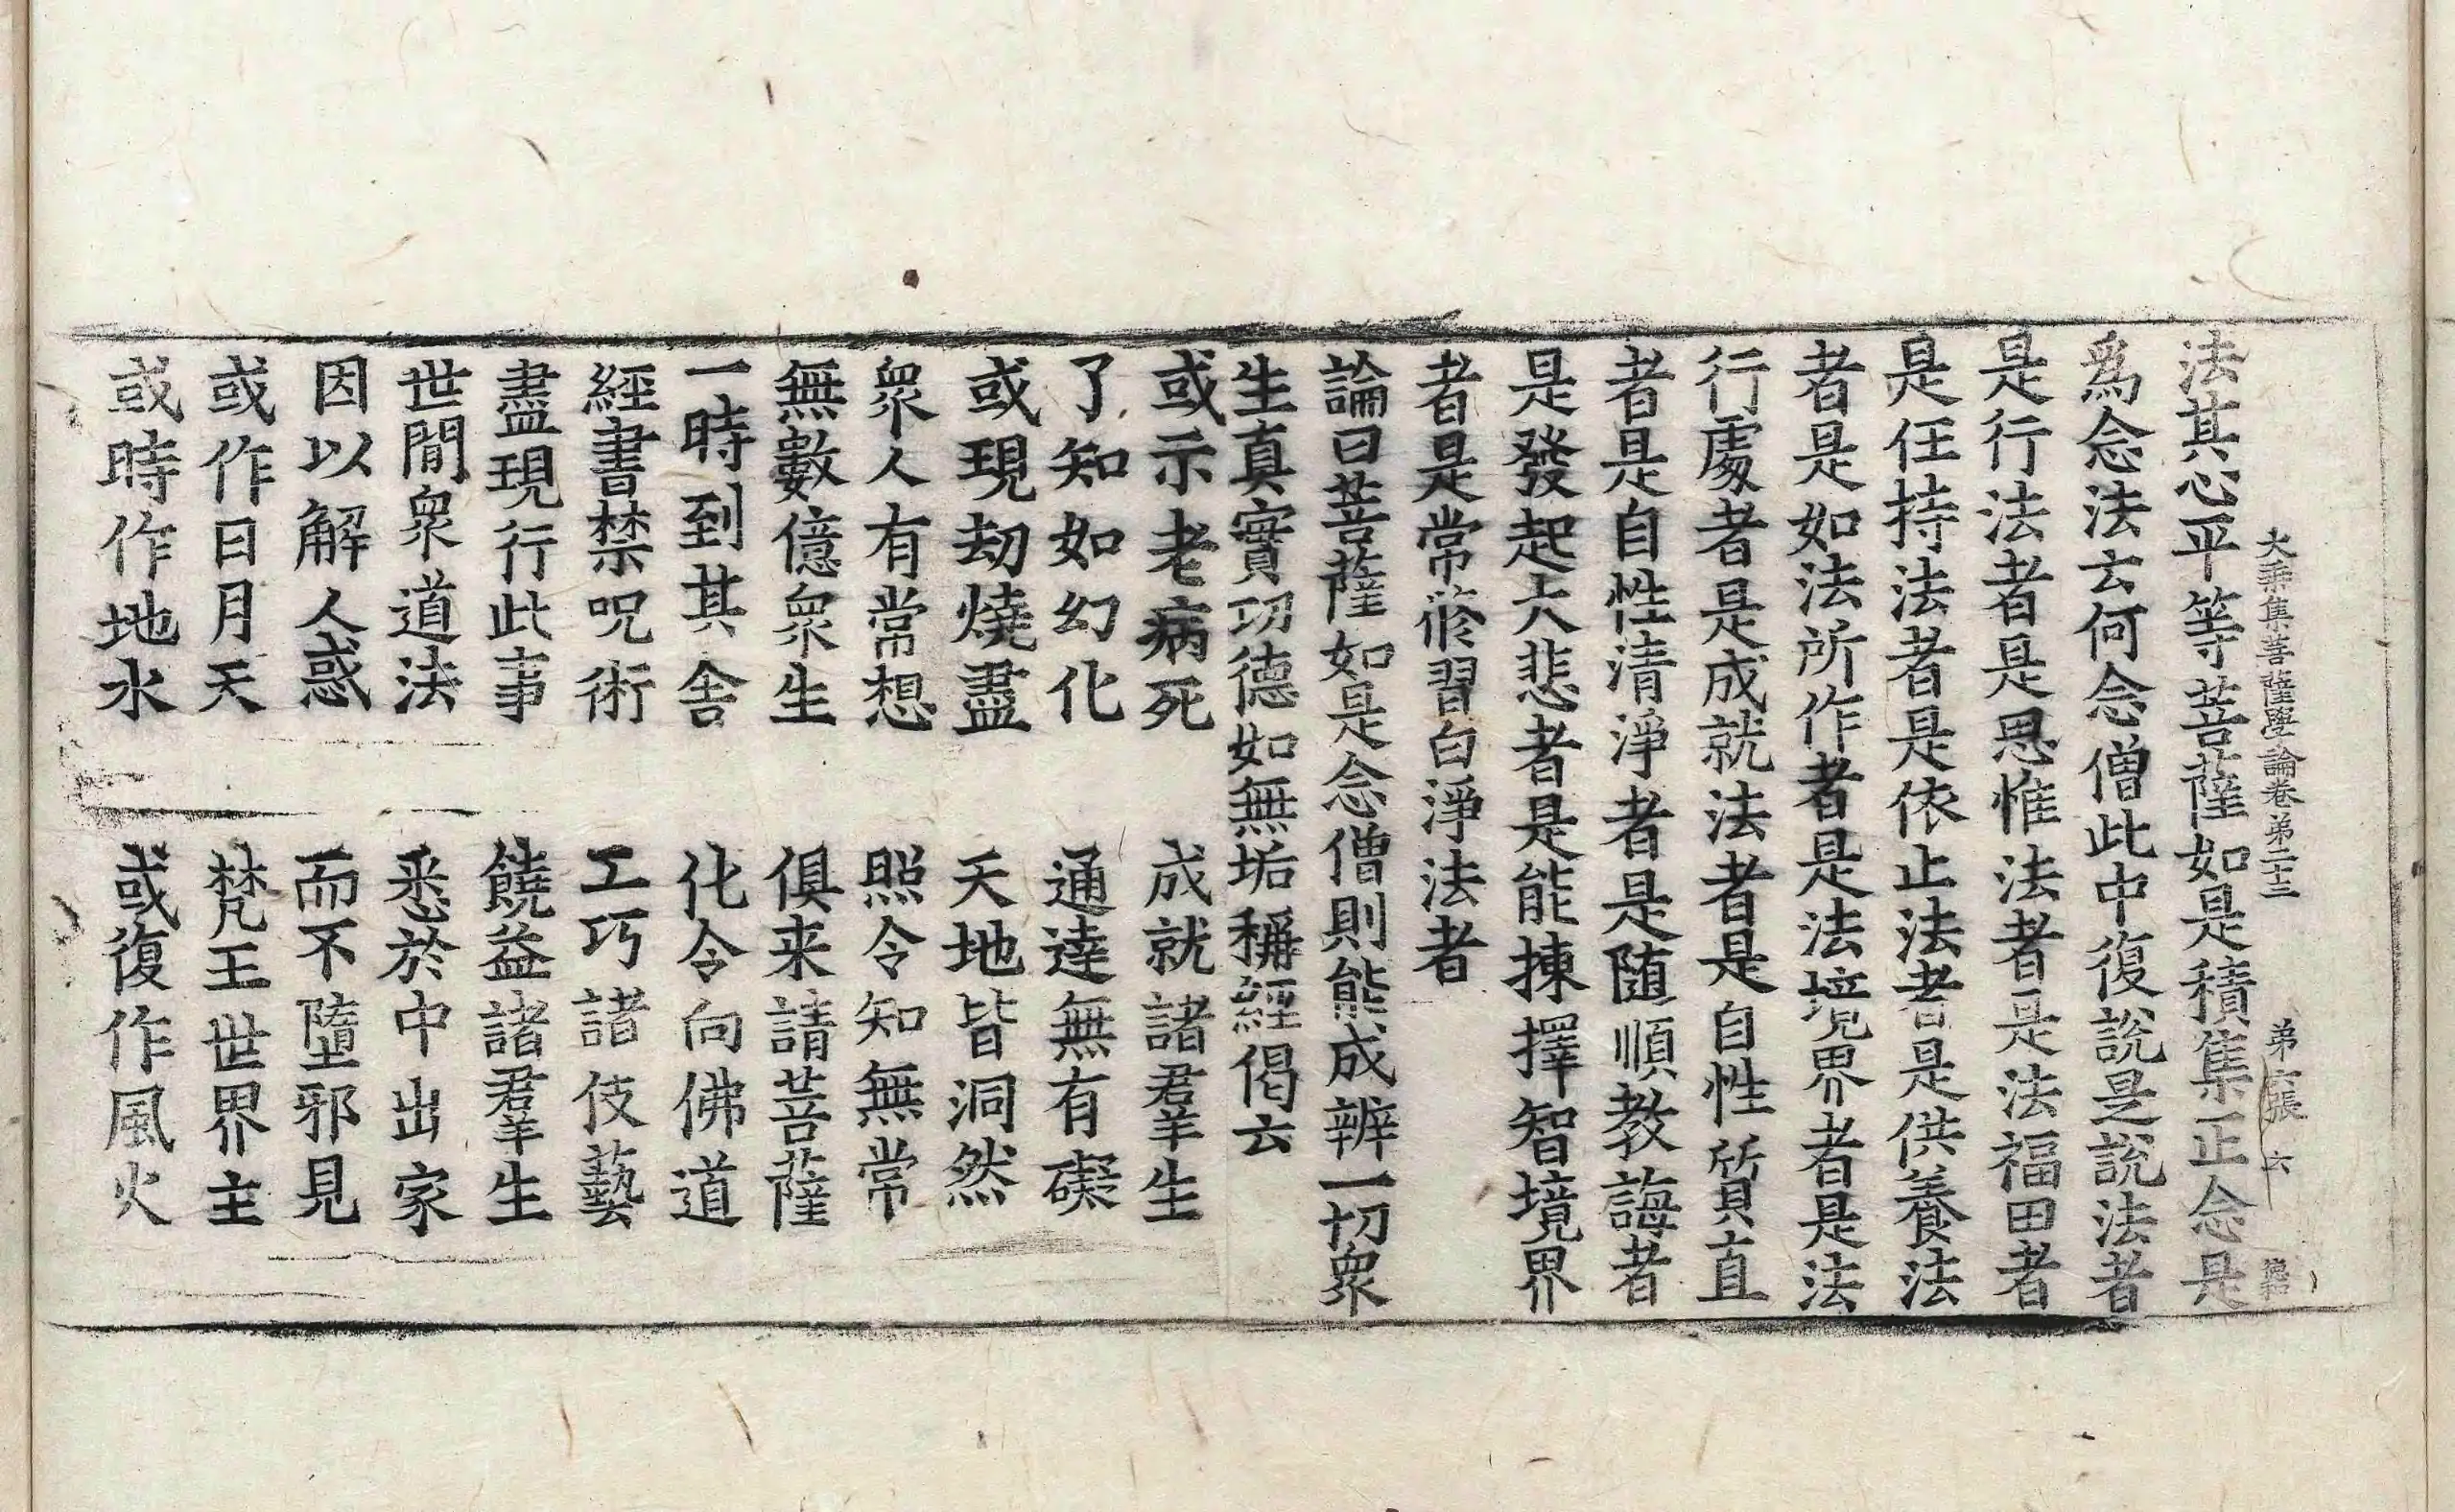 大乘集菩薩學論卷第二十三 弟六張 六
法其心平等菩薩如是積集正念是
爲念法云何念僧此中復說是說法者
是行法者是思惟法者是法福田者
是任持法者是依止法者是供養法
者是如法所作者是法境界者是法
行處者是成就法者是自性質直
者是自性清淨者是随順教誨者
是發起大悲者是能揀擇智境界
者是常修習白淨法者
論曰菩薩如是念僧則能成辦一切衆
生真實功德如無垢稱經偈云
或示老病死 成就諸羣生
了知如幻化 通達無有礙
或現劫燒盡 天地皆洞然
衆人有常想 照令知無常
無數億衆生 俱来請菩薩
一時到其舍 化令向佛道
經書禁呪術 工巧諸伎藝
盡現行此事 饒益諸羣生
世間衆道法 悉於中出家
因以解人惑 而不墮邪見
或作日月天 梵王世界主
或時作地水 或復作風火